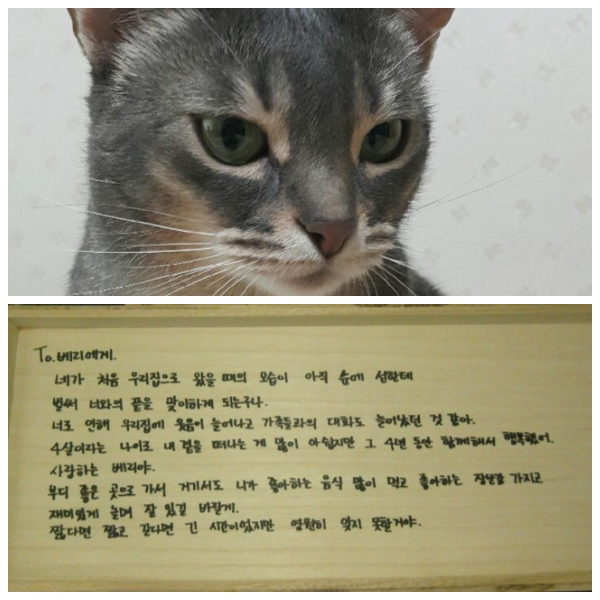 To. 베리에게.
네가 처음 우리집으로 왔을 때의 모습이 아직 눈에 선한데
벌써 너와의 끝을 맞이하게 되는구나.
너로 인해 우리집에 웃음이 늘어나고 가족들과의 대화도 늘어났던 것 같아.
4살이라는 나이로 내 곁을 떠나는 게 많이 아쉽지만 그 4년 동안 함께해서 행복했어.
사랑하는 베리야.
부디 좋은 곳으로 가서 거기서도 니가 좋아하는 음식 많이 먹고 좋아하는 장난감 가지고
재미있게 놀며 잘 있길 바랄게.
짧다면 짧고 길다면 긴 시간이었지만 영원히 잊지 못할거야.